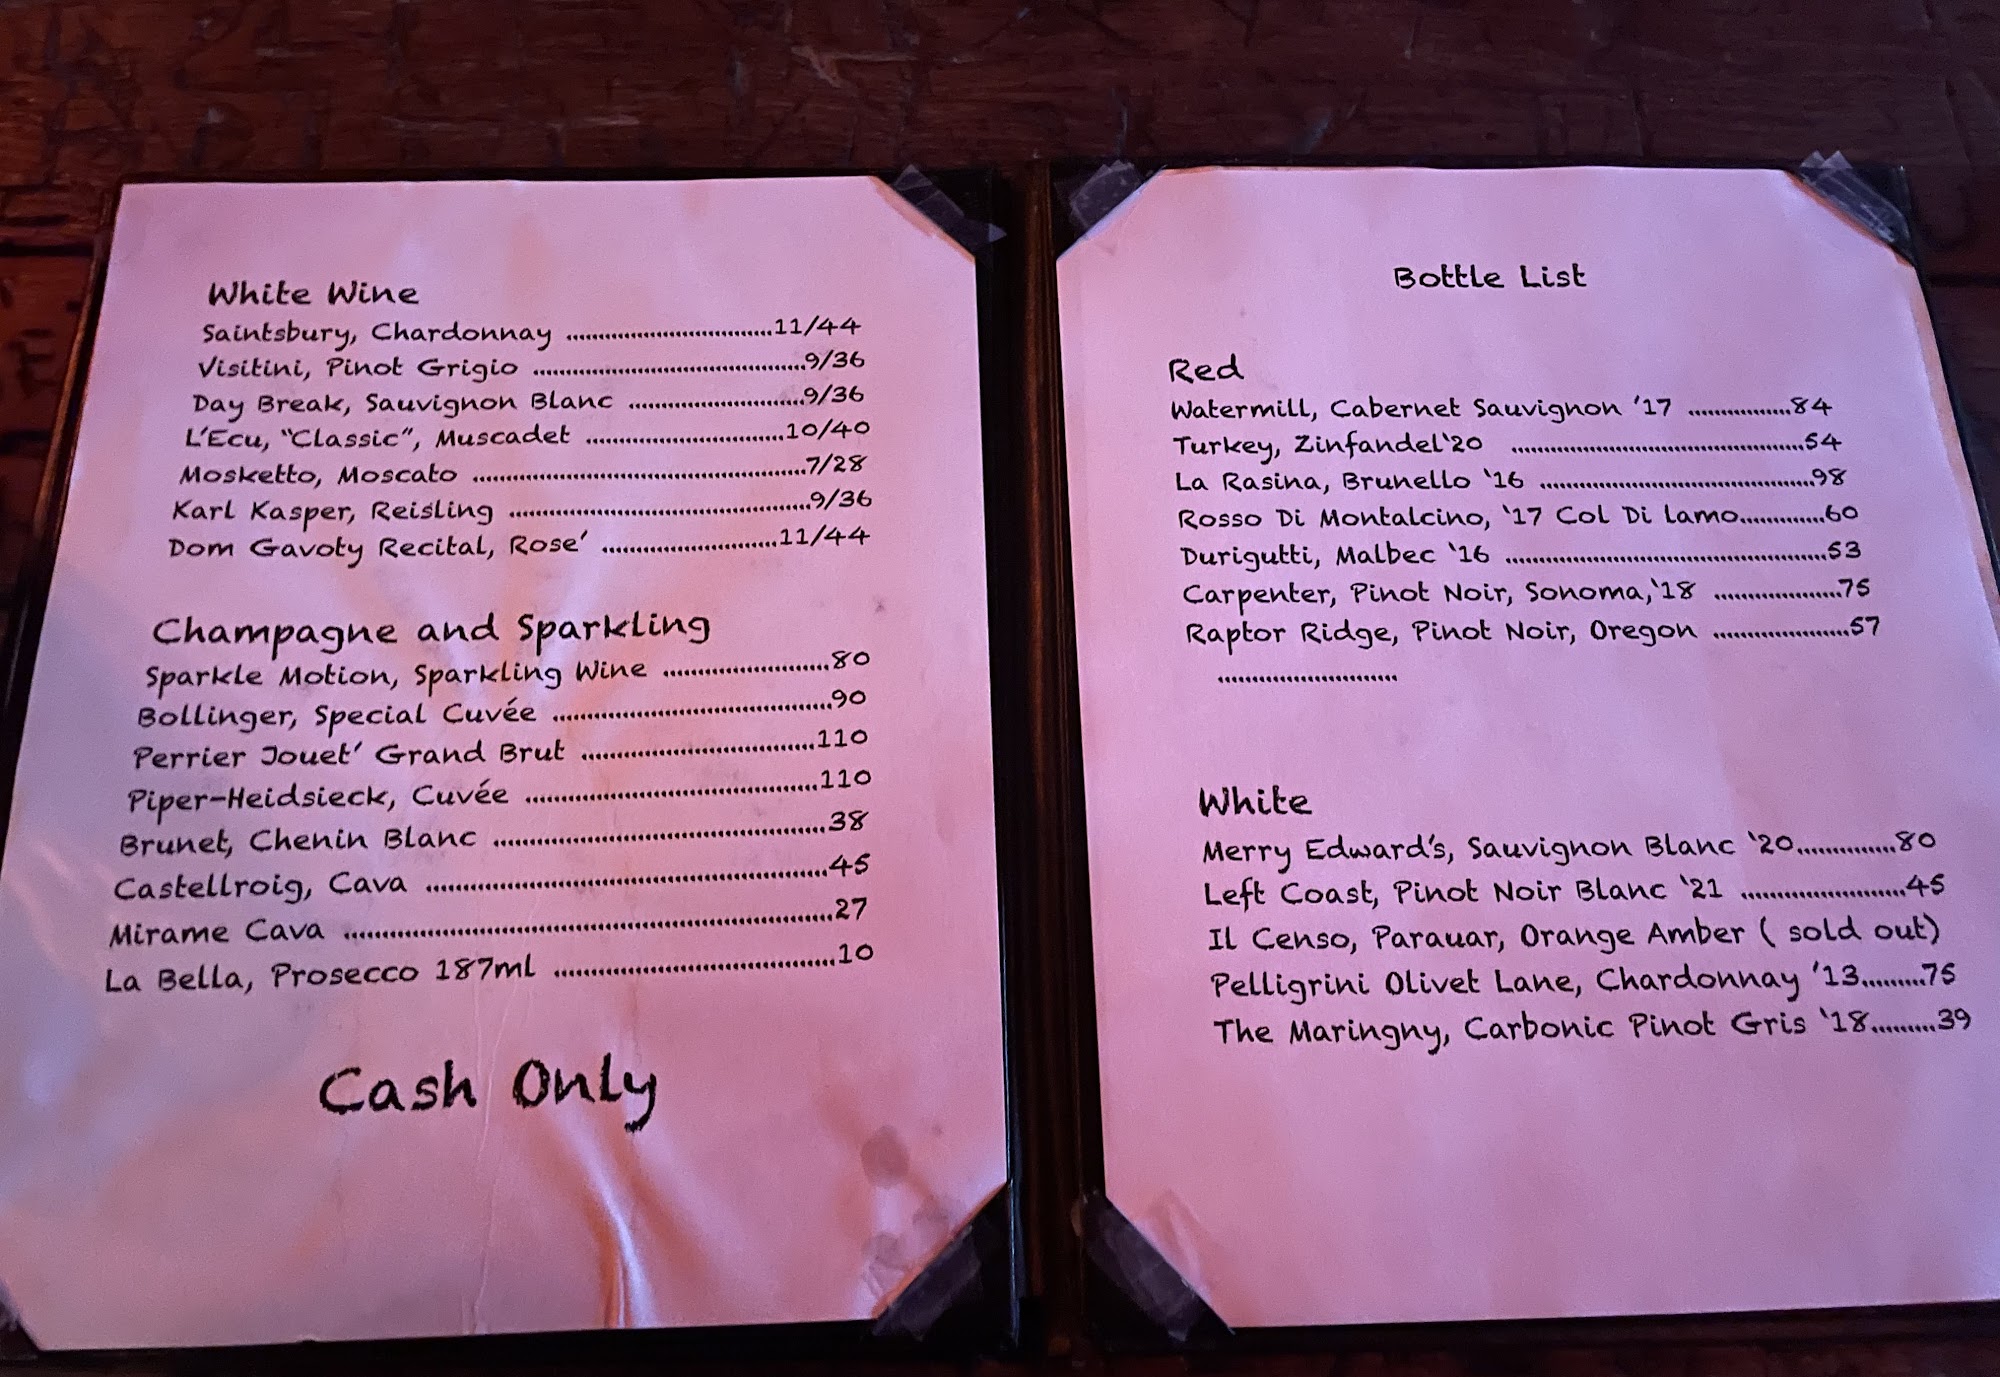 White Wine
Saintsbury, Chardonnay ..............................11/44
Visitini, Pinot Grigio .......................................9/36
Day Break, Sauvignon Blanc .........................9/36
L'Ecu, "Classic", Muscadet ............................10/40
Mosketto, Moscato ................................................7/28
Karl Kasper, Reisling ...........................................9/36
Dom Gavoty Recital, Rose' .........................11/44
Champagne and Sparkling
Sparkle Motion, Sparkling Wine .......................80
Bollinger, Special Cuvée .......................................90
Perrier Jouet' Grand Brut .................................110
Piper-Heidsieck, Cuvée .........................................110
Brunet, Chenin Blanc ...............................................38
Castellroig, Cava .........................................................45
Mirame Cava ....................................................................27
La Bella, Prosecco 187ml .......................................10
Cash Only
Bottle List
Red
Watermill, Cabernet Sauvignon '17 ...............84
Turkey, Zinfandel'20 ..........................................54
La Rasina, Brunello '16 .......................................98
Rosso Di Montalcino, '17 Col Di lamo............60
Durigutti, Malbec '16 ..............................................53
Carpenter, Pinot Noir, Sonoma,'18 ..................75
Raptor Ridge, Pinot Noir, Oregon ...................57
..........................
White
Merry Edward's, Sauvignon Blanc '20..............80
Left Coast, Pinot Noir Blanc '21 ......................45
Il Censo, Parauar, Orange Amber ( sold out)
Pelligrini Olivet Lane, Chardonnay '13.........75
The Maringny, Carbonic Pinot Gris '18.........39